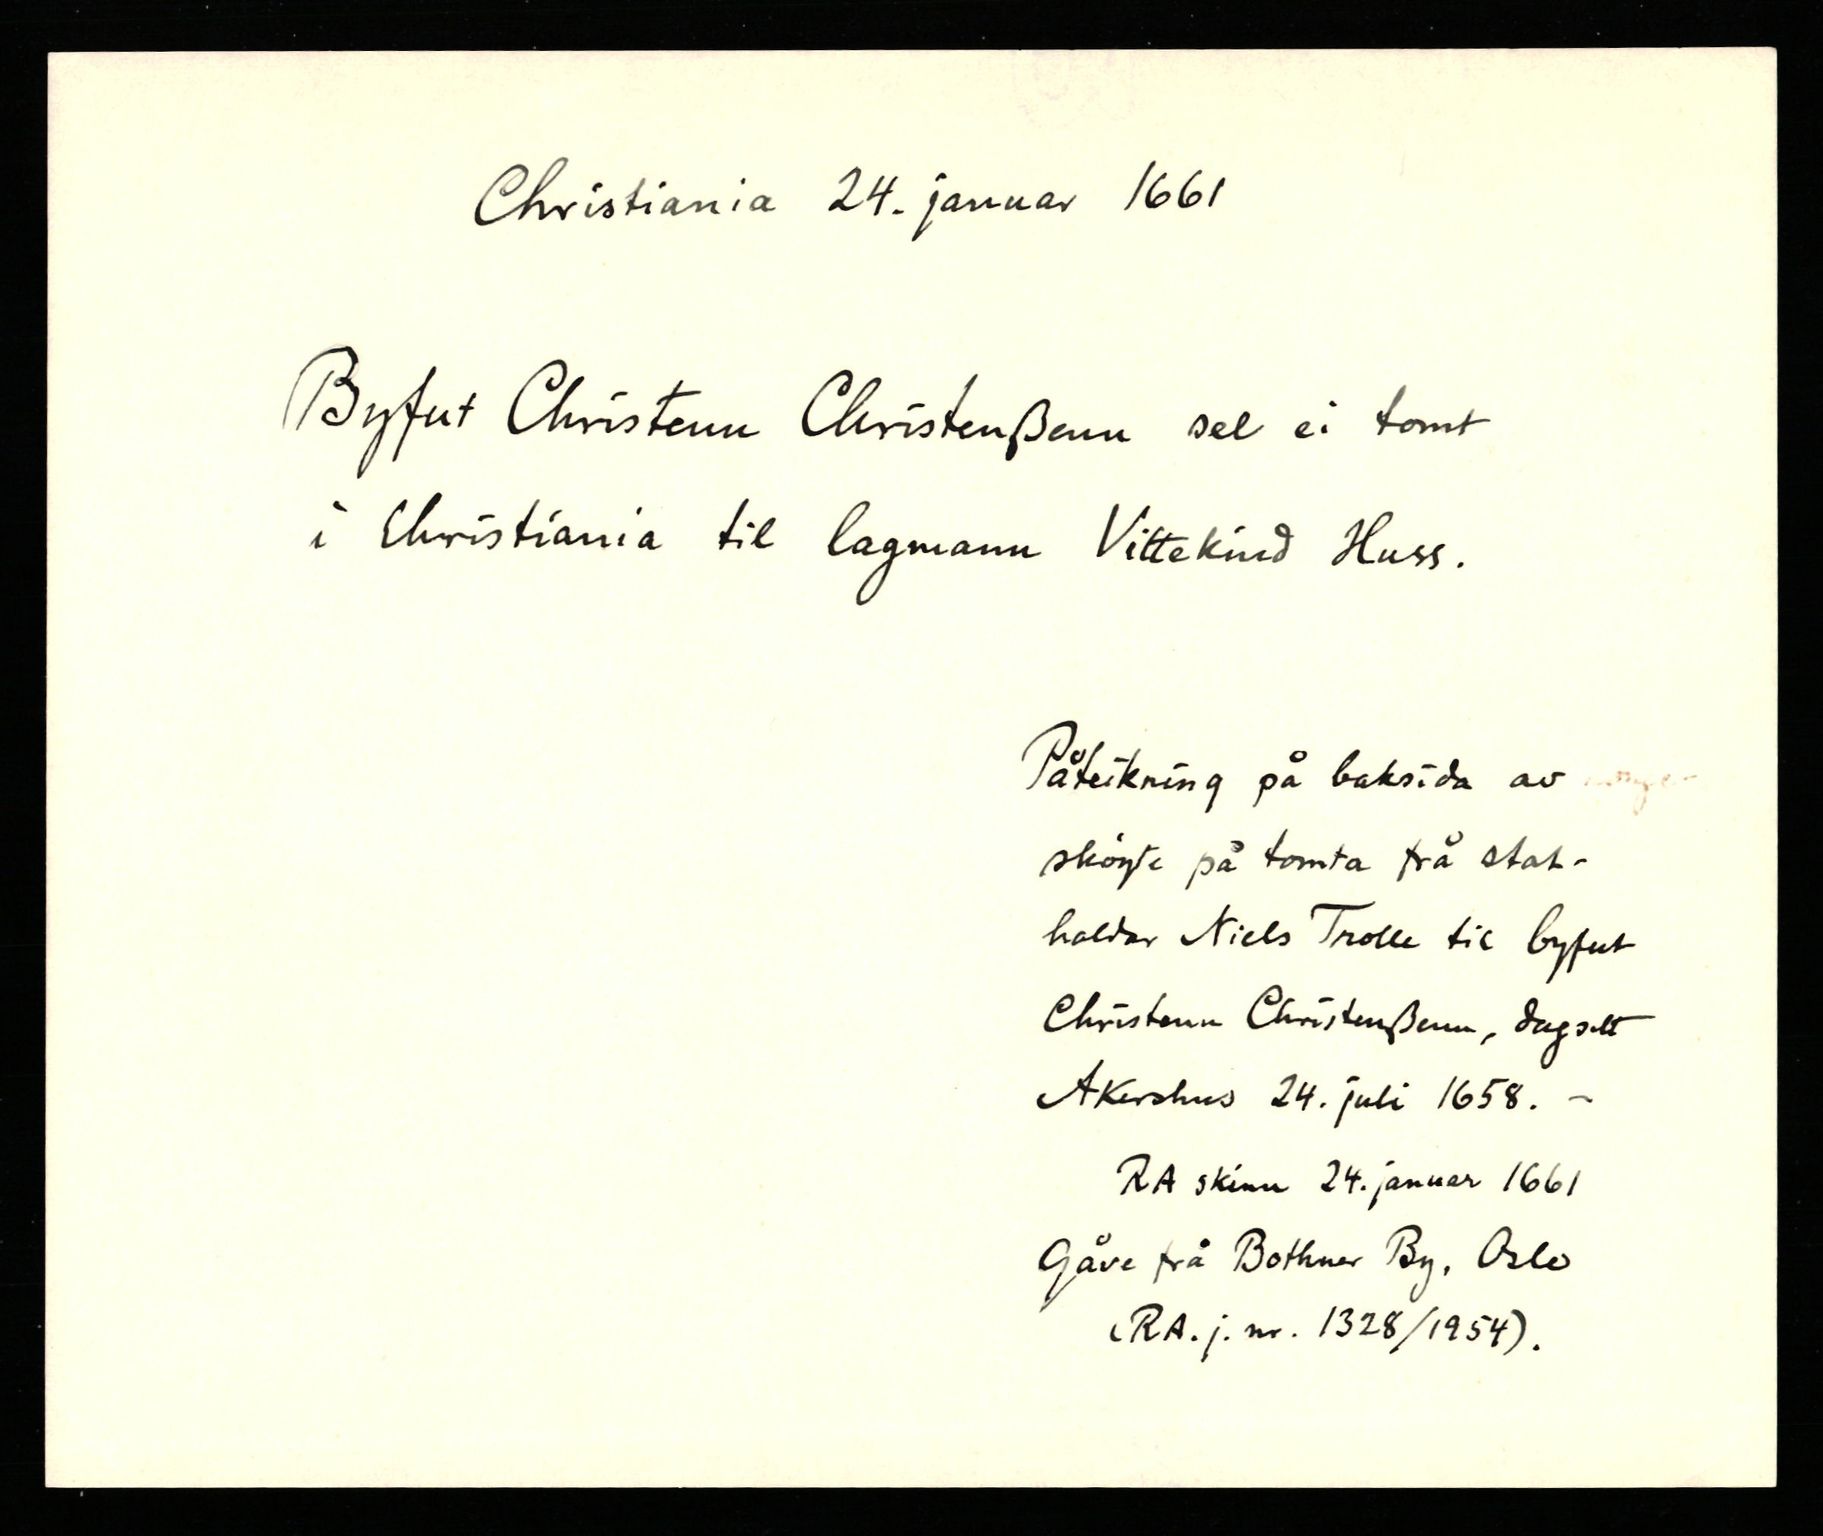 Christiania 24. januar 1661
Byfut Christenn Christenßenn sel ei tomt
i Christiania til lagmann Vittekind Huss.
Påteikning på baksida av
skøyte på tomta frå stat-
haldar Niels Trolle til byfut
Christenn Christenßenn, dagsett
Akershus 24. juli 1658. –
RA skinn 24. januar 1661
Gåve frå Bothner By, Oslo
(RA. j. nr. 1328/1954).